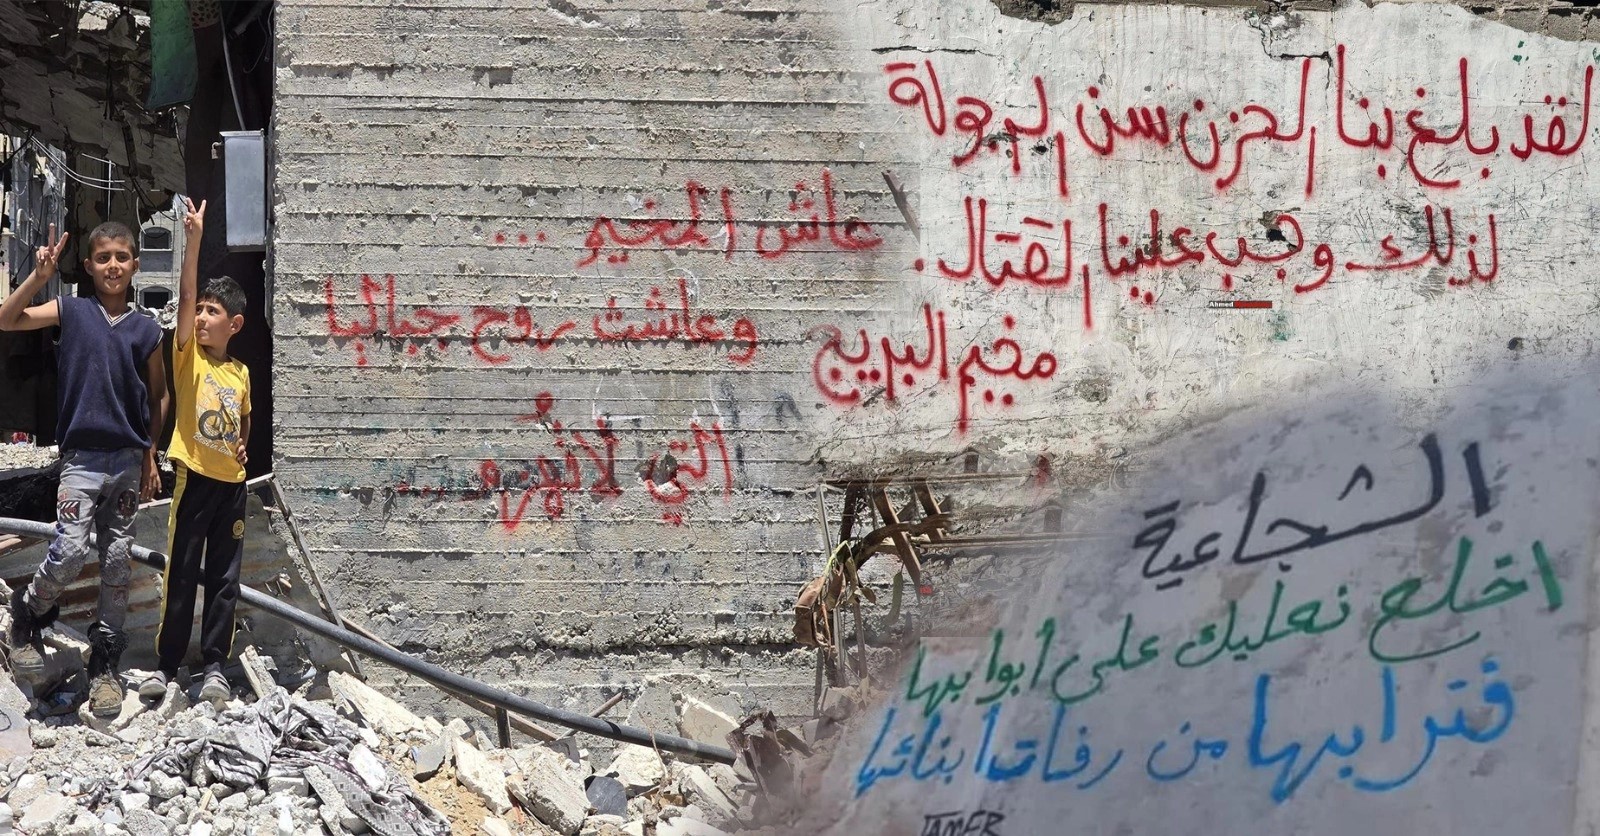 لقد بلغ بنا الحزن سن الرجولة
لذلك وجب علينا القتال.
مخيم البريج
عاش المخيم ...
وعاشت روح جباليا
التي لا تُهزم ...
الشجاعية
اخلع نعليك على أبوابها
فترابها من رفات أبنائها
TAMER
Ahmed